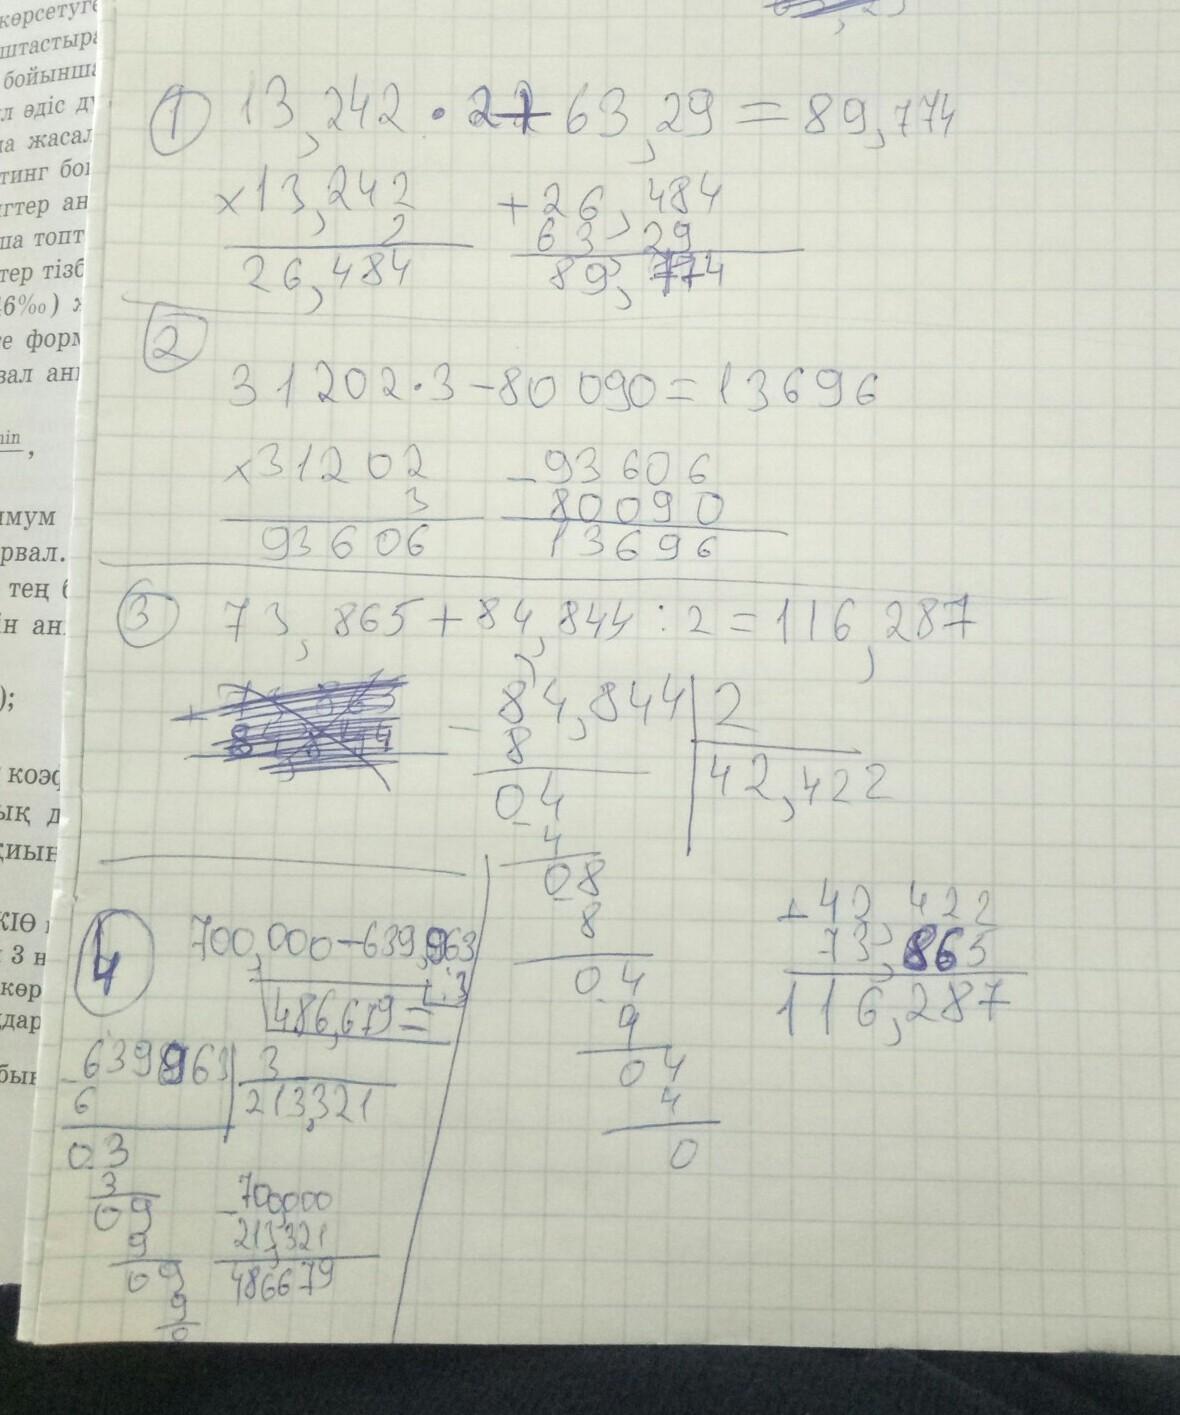 көрсетуге
штастыра
бойынша
л әдіс
а жасал
тинг
гтер ан
ша топт
тер тізб
46‰)
е форм
вал
min
,
имум
рвал.
тең
ін ан
);
коэф
ық д
қиын
КІӨ
3 н
көр
дар
бын
1 13,242 · 2 + 63,29 = 89,774
×13,242 +26,484
2 63,29
26,484 89,774
2
31202·3-80090=13696
×31202 -93606
3 80090
93606 13696
3 73,865+84,844:2=116,287
+ 73,865
84,844
- 84,844 2
8 42,422
04
- 4
08
8
04
9
04
4
0
+42,422
73,865
116,287
4 700,000-639,963
:3
486,679=
-639963 3
6 213,321
03
3
09
9
09
9
0
-700,000
213,321
486679